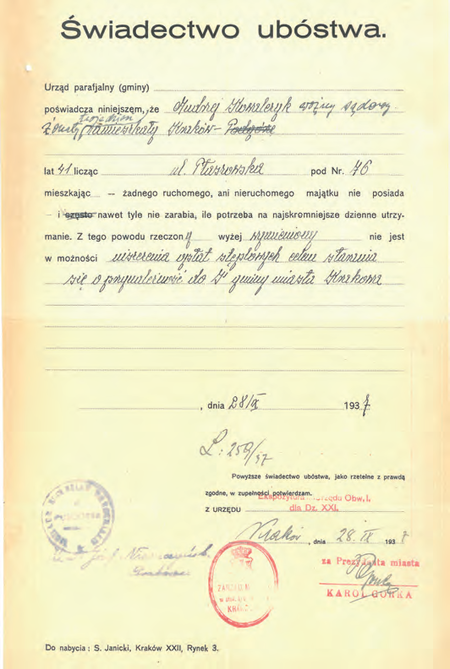 Świadectwo ubóstwa.
Urząd parafjalny (gminy)
poświadcza niniejszem, że Andrzej Kowalczyk woźny sądowy
żonaty zamieszkały Kraków - Podgórze
lat 41 licząc ul. Płaszowska pod Nr. 76
mieszkając -- żadnego ruchomego, ani nieruchomego majątku nie posiada
- i często nawet tyle nie zarabia, ile potrzeba na najskromniejsze dzienne utrzy-
manie. Z tego powodu rzeczony wyżej wymieniony nie jest
w możności uiszczenia opłat stęplowych celem starania
się o przynależność do gminy miasta Krakowa
, dnia 28/IX 1937
L: 259/37
Powyższe świadectwo ubóstwa, jako rzetelne z prawdą
zgodne, w zupełności potwierdzam.
Z URZĘDU Ekspozytura Urzędu Obw. I.
dla Dz. XXI.
Kraków, dnia 28. IX 1937
za Prezydenta miasta
KAROL GÓRKA
Do nabycia: S. Janicki, Kraków XXII, Rynek 3.